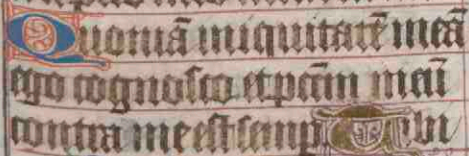 Quoniā iniquitatē meā
ego cognosco et pctm̄ meū
contra me est semp Tibi